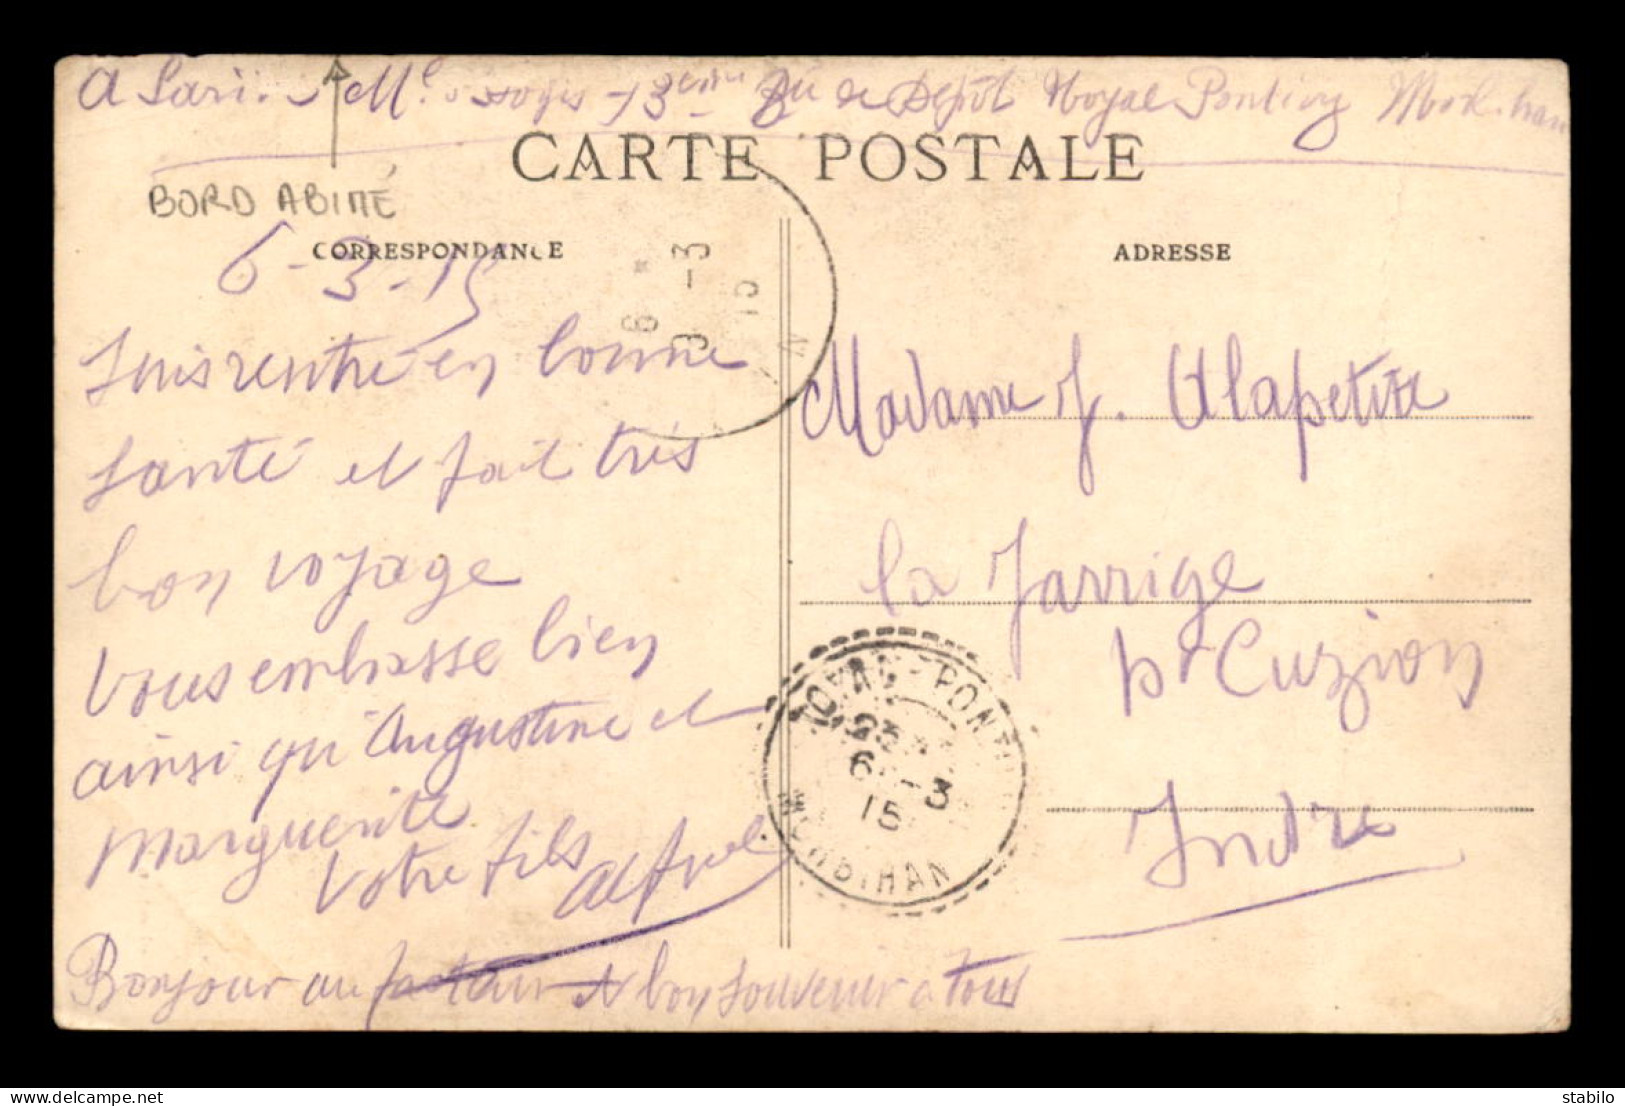 A
13ème
de Dépôt Noyal Pontivy Morbihan
CARTE POSTALE
BORD ABIMÉ
CORRESPONDANCE
ADRESSE
6-3-15
Suis rentré en bonne
santé et fait très
bon voyage
Vous embrasse bien
ainsi qu'Augustine et
Marguerite
Votre fils
Alfred
Bonjour au facteur et bon souvenir a tous
Madame J. Alapetite
la Jarrige
pr Cuzion
Indre
6 *
9 -3
15
NOYAL-PONTIVY
23
6 -3
15
MORBIHAN
www.delcampe.net
stabilo